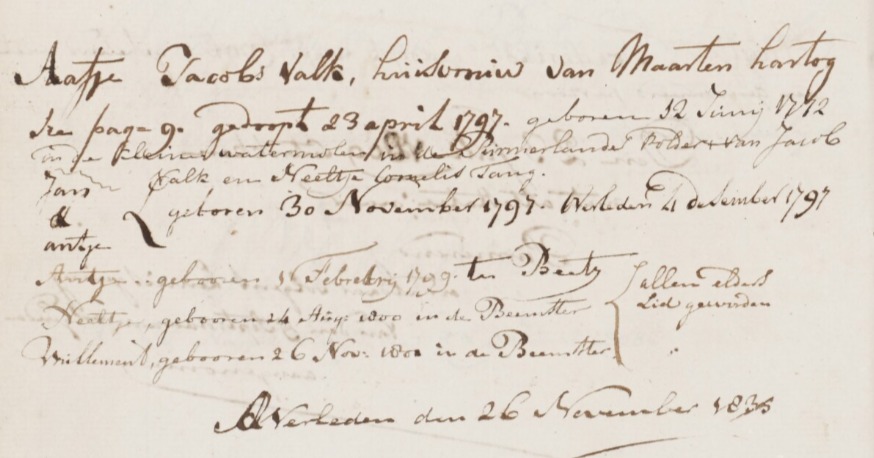 Aafje Jacobs Valk, huisvrouw van Maarten hartog
Zie page 9. gedoopt 23 april 1797. geboren 12 Junij 1772
in de kleine watermolen in de Purmerlander Polder van Jacob
Valk en Neeltje Cornelis Tang.
Jan & antje { geboren 30 November 1797. Overleden 4 desember 1797
Antje geboren 1 Febrwarij 1799. ten Beets { allen elders
Neeltje, gebooren 24 Aug: 1800 in de Beemster Lid geworden
Willempt, gebooren 26 Nov: in de Beemster "
Overleden den 26 November